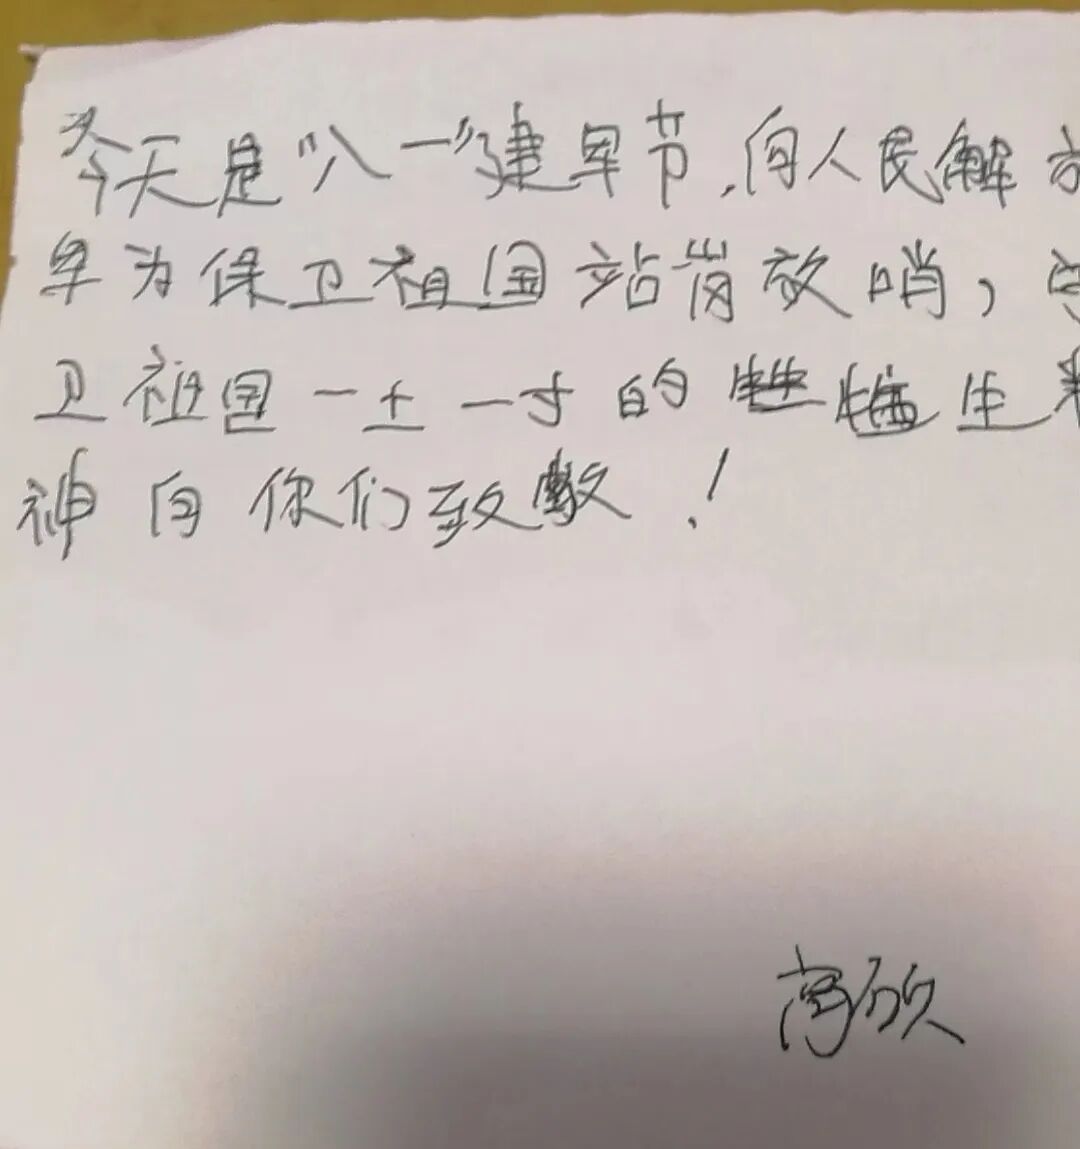 今天是“八一”建军节,向人民解放
军为保卫祖国站岗放哨,守
卫祖国一土一寸的牺牲生精
神向你们致敬!